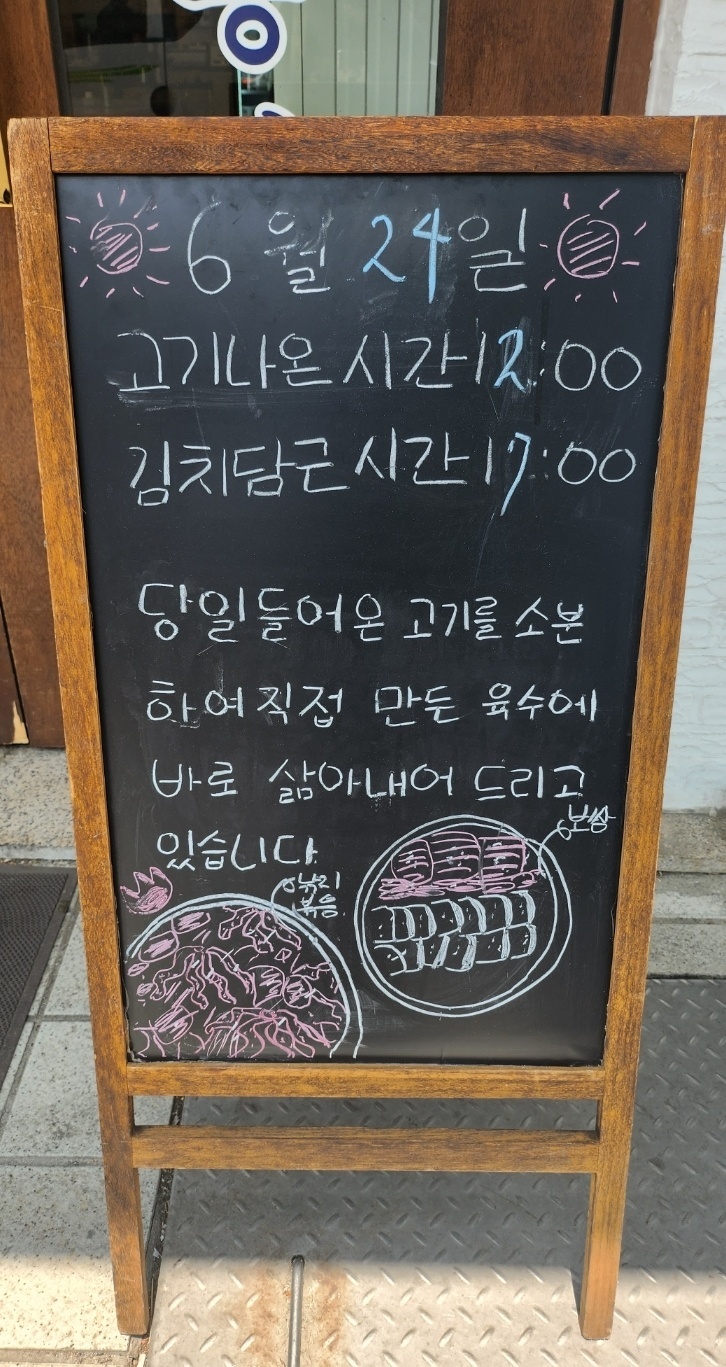 6월 24일
고기나온시간 12:00
김치담근시간 17:00
당일들어온 고기를 소분
하여직접 만든 육수에
바로 삶아내어 드리고
있습니다
보쌈
낚지
볶음